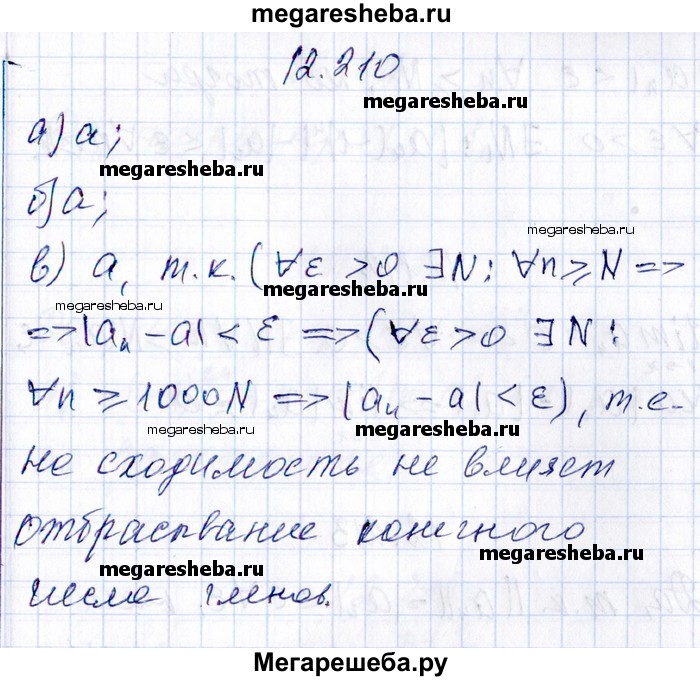 megaresheba.ru
12.210
megaresheba.ru
а) a;
megaresheba.ru
б) a;
megaresheba.ru
в) a, т.к. (∀ε > 0 ∃N: ∀n ≥ N =>
megaresheba.ru
megaresheba.ru
=> |aₙ - a| < ε => (∀ε > 0 ∃N:
∀n ≥ 1000N => |aₙ - a| < ε), т.е.
megaresheba.ru
megaresheba.ru
на сходимость не влияет
отбрасывание конечного
megaresheba.ru
megaresheba.ru
числа членов.
Мегарешеба.ру